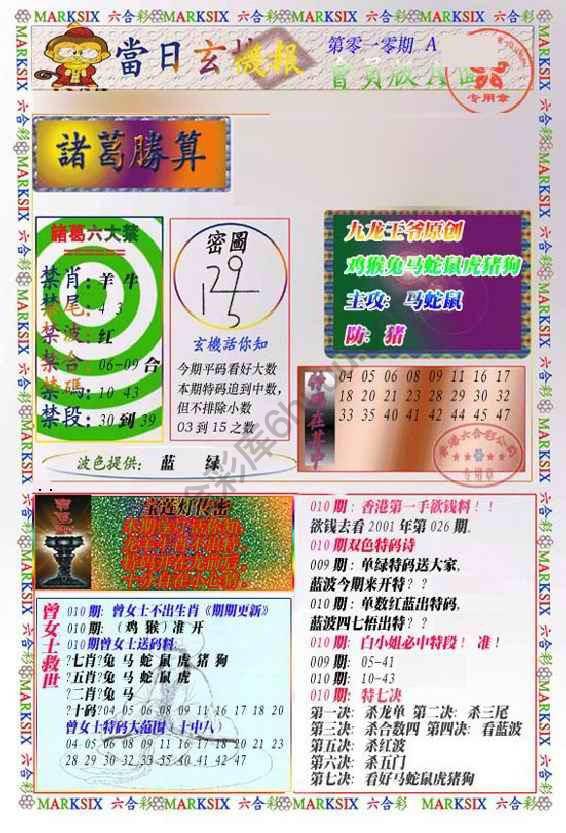 MARKSIX 六合彩 MARKSIX 六合彩 MARKSIX 六合彩 MARKSIX 六合彩
當日玄机機报
第零一零期 A
會員版A面
专用章
諸葛勝算
諸葛六大禁
禁肖:羊牛
禁尾: 4 3
禁波:红
禁合:06-09 合
禁碼:10 43
禁段:30到39
密圖
玄機話你知
今期平码看好大数
本期特码追到中数,
但不排除小数
03到15之数
九龙王爷原创
鸡猴兔马蛇鼠虎猪狗
主攻: 马蛇鼠
防: 猪
特码在其中
04 05 06 08 09 11 16 17
18 20 21 23 28 29 30 32
33 35 40 41 42 44 45 47
香港六合彩公司
专用章
波色提供: 蓝 绿
宝莲灯传密
010期:香港第一手欲钱料!!
欲钱去看2001年第026期。
010期双色特码诗
009期:单绿特码送大家,
蓝波今期来开特??
010期:单数红蓝出特码,
蓝波四七悟出特?
010期:白小姐必中特段! 准!
009期: 05-41
010期: 10-43
010期: 特七决
第一决: 杀龙单 第二决: 杀三尾
第三决: 杀合数四 第四决: 看蓝波
第五决: 杀红波
第六决: 杀五门
第七决: 看好马蛇鼠虎猪狗
曾女士救世
010期: 曾女士不出生肖《期期更新》
010期:(鸡猴)准开
010期曾女士送码料:
?七肖?兔马蛇鼠虎猪狗
?五肖?兔马蛇鼠虎
?二肖?兔马
?十码?04 05 06 08 09 11 16 17 18 20
曾女士特码大范围(十中八)
04 05 06 08 09 11 16 17 18 20 21 23
28 29 30 32 33 35 40 41 42 47
MARKSIX 六合彩 MARKSIX 六合彩 MARKSIX 六合彩 MARKSIX 六合彩